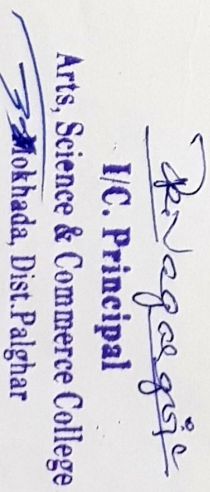 I/C. Principal
Arts, Science & Commerce College
Mokhada, Dist.Palghar